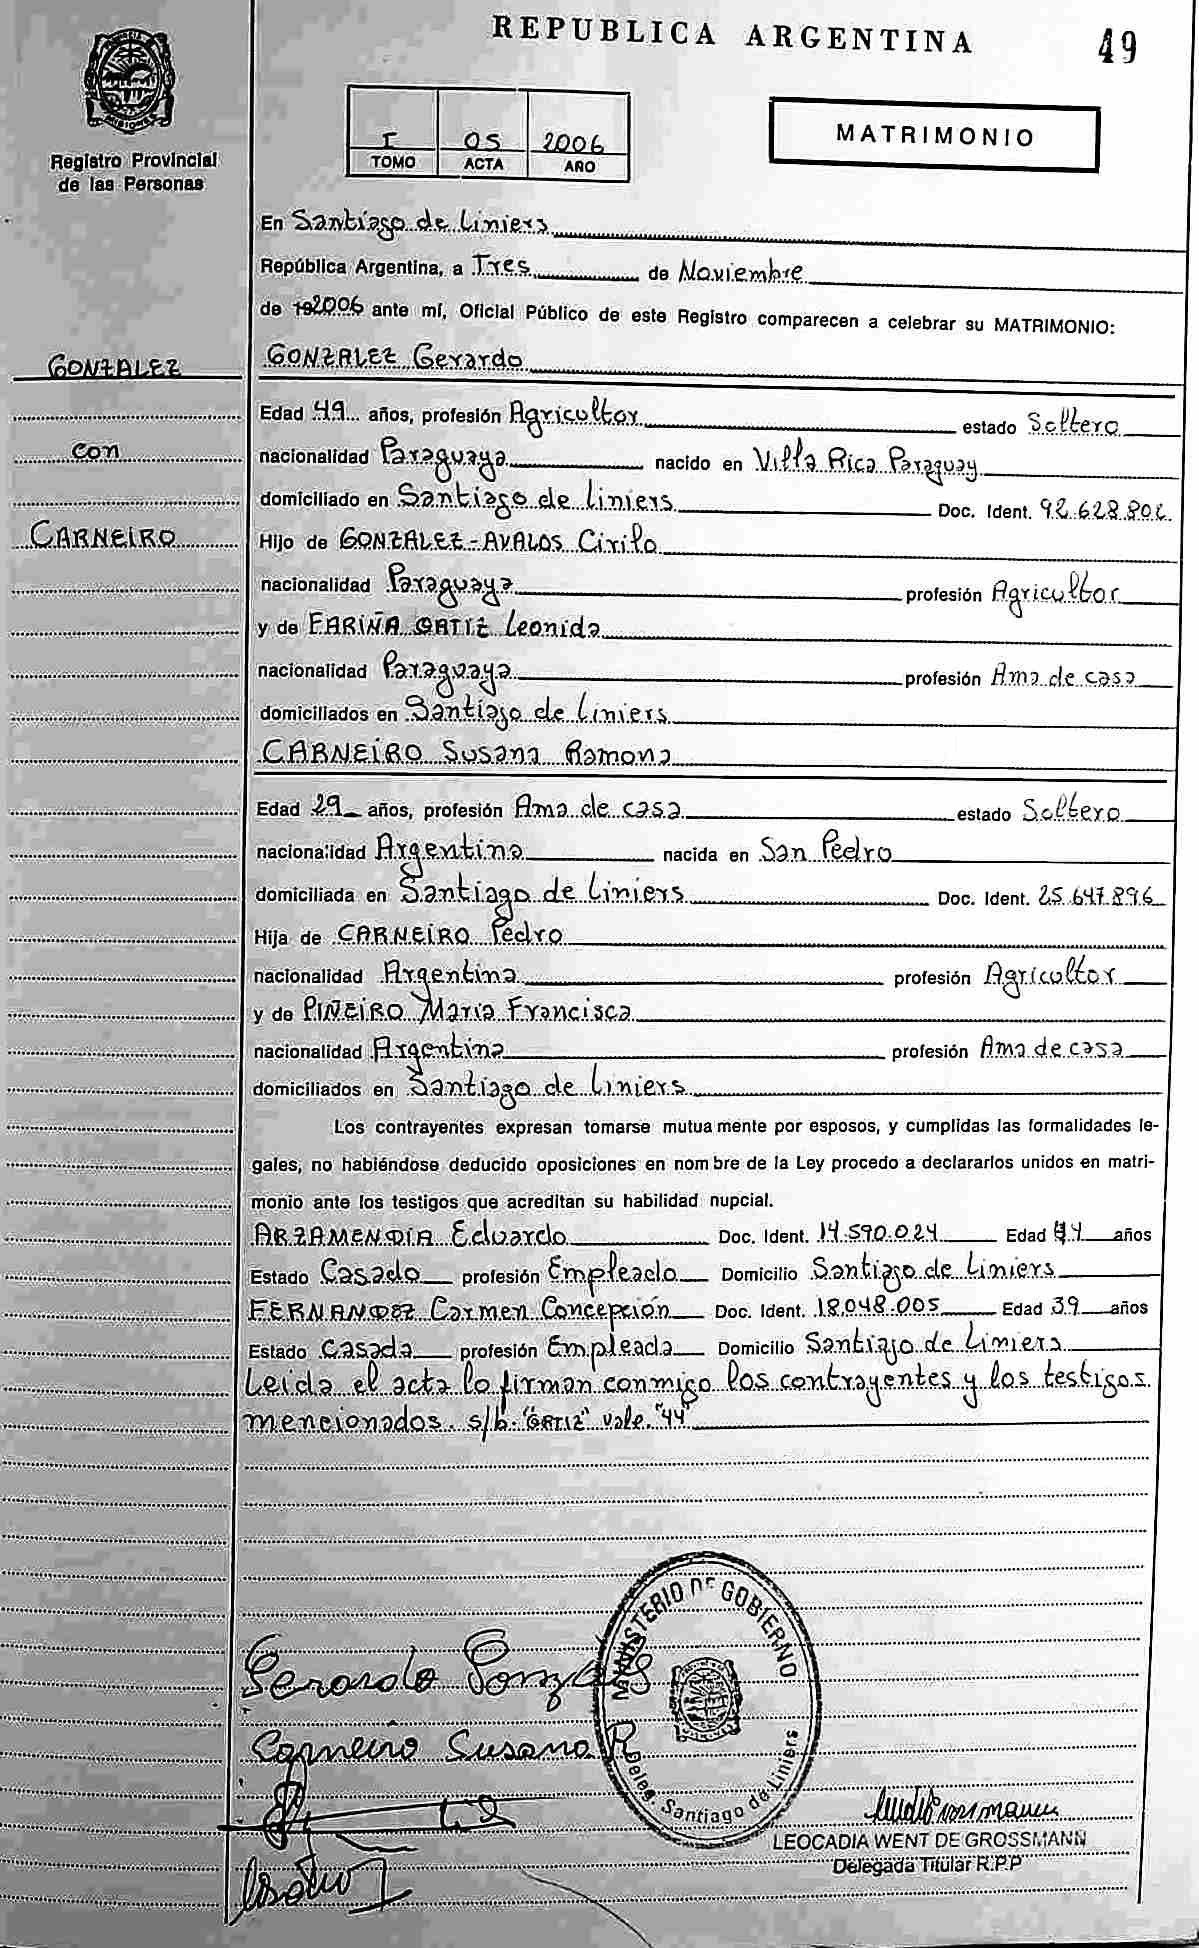 REPUBLICA ARGENTINA
49
MISIONES
Registro Provincial
de las Personas
I 05 2006
TOMO ACTA AÑO
MATRIMONIO
En Santiago de Liniers
República Argentina, a Tres de Noviembre
de 192006 ante mí, Oficial Público de este Registro comparecen a celebrar su MATRIMONIO:
GONZALEZ
con
CARNEIRO
GONZALEZ Gerardo
Edad 49 años, profesión Agricultor estado Soltero
nacionalidad Paraguaya nacido en Villa Rica Paraguay
domiciliado en Santiago de Liniers Doc. Ident. 92.628.802
Hijo de GONZALEZ-AVALOS Cirilo
nacionalidad Paraguaya profesión Agricultor
y de FARIÑA ORTIZ Leonida
nacionalidad Paraguaya profesión Ama de casa
domiciliados en Santiago de Liniers
CARNEIRO Susana Ramona
Edad 29 años, profesión Ama de casa estado Soltero
nacionalidad Argentina nacida en San Pedro
domiciliada en Santiago de Liniers Doc. Ident. 25.647.896
Hija de CARNEIRO Pedro
nacionalidad Argentina profesión Agricultor
y de PIÑEIRO Maria Francisca
nacionalidad Argentina profesión Ama de casa
domiciliados en Santiago de Liniers
Los contrayentes expresan tomarse mutuamente por esposos, y cumplidas las formalidades le-
gales, no habiéndose deducido oposiciones en nombre de la Ley procedo a declararlos unidos en matri-
monio ante los testigos que acreditan su habilidad nupcial.
ARZAMENDIA Eduardo Doc. Ident. 14.590.024 Edad 44 años
Estado Casado profesión Empleado Domicilio Santiago de Liniers
FERNANDEZ Carmen Concepción Doc. Ident. 18.048.005 Edad 39 años
Estado Casada profesión Empleada Domicilio Santiago de Liniers
Leida el acta lo firman conmigo los contrayentes y los testigos
mencionados. s/b. "ORTIZ" vale. "44"
MINISTERIO DE GOBIERNO
Deleg. Santiago de Liniers
Gerardo Gonzalez
Carneiro Susana R
LEOCADIA WENT DE GROSSMANN
Delegada Titular R.P.P